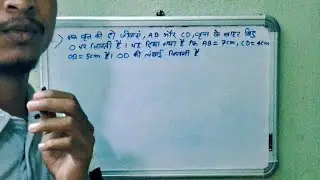 एक वृत्त की दो जीवाएँ, AB और CD, वृत्त के बाहर बिंदु
O पर मिलती हैं। यह दिया गया है कि AB = 7cm, CD = 4cm
OB = 5cm है। OD की लंबाई कितनी है